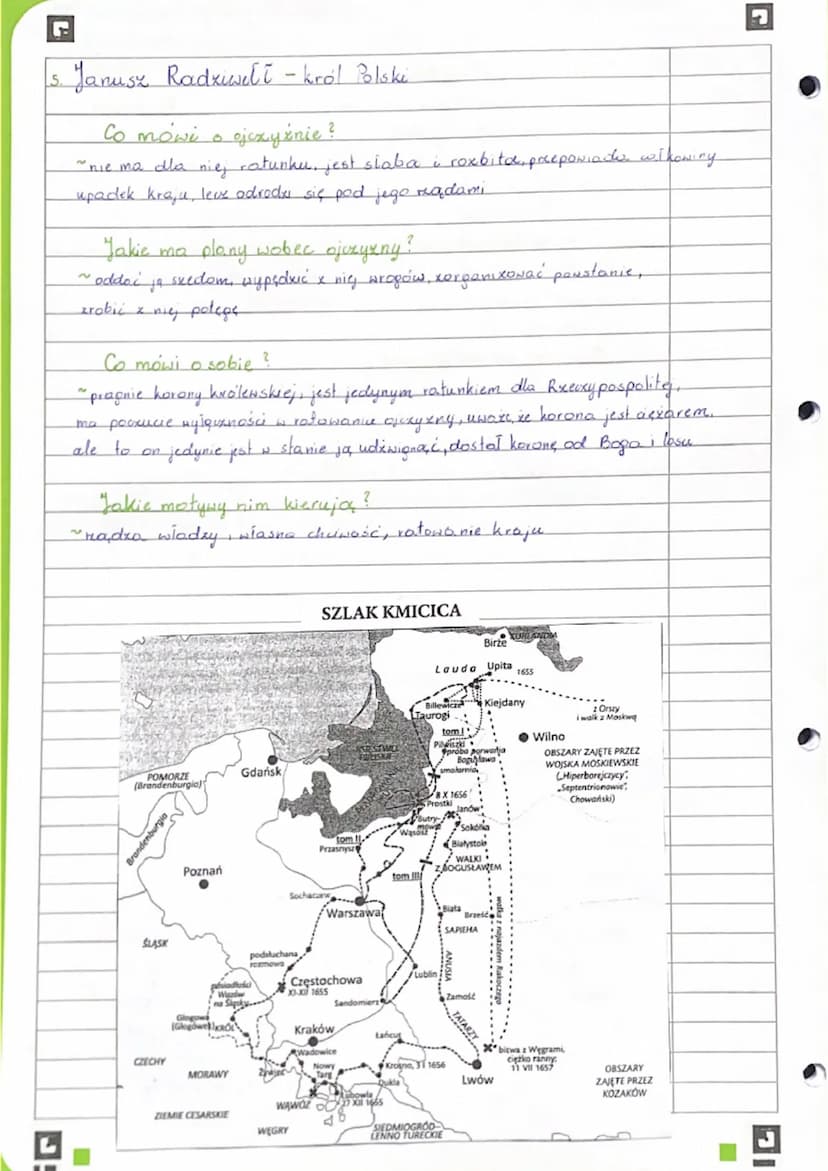 5. Janusz Radziwiłł – król Polski
Co mówi o ojczyźnie?
~nie ma dla niej ratunku, jest słaba i rozbita, przepowiada całkowity
upadek kraju, lecz odrodzi się pod jego rządami
Jakie ma plany wobec ojczyzny?
~ oddać ją szwedom, wypędzić z niej wrogów, zorganizować powstanie,
zrobić z niej potęgę
Co mówi o sobie?
~pragnie korony królewskiej, jest jedynym ratunkiem dla Rzeczypospolitej,
ma poczucie wyłączności w ratowaniu ojczyzny, uważa, że korona jest ciężarem,
ale to on jedynie jest w stanie ją udźwignąć, dostał koronę od Boga i losu
Jakie motywy nim kierują?
~rządza władzy, własna chciwość, ratowanie kraju
SZLAK KMICICA
Birże
KURLANDIA
Lauda
Upita
1655
Billewicze
Kiejdany
Taurogi
z Orszy
i walk z Moskwą
tom I
Wilno
Pilwiszki
próba porwania
Bogusława
smolarnia
OBSZARY ZAJĘTE PRZEZ
WOJSKA MOSKIEWSKIE
(„Hiperborejczycy”,
„Septentrionowie”,
Chowański)
POMORZE
(Brandenburgia)
Gdańsk
KSIĘSTWO
PRUSKIE
8 X 1656
Prostki
Janów
Brandenburgia
Wąsosz
Sokółka
tom II
Przasnysz
Białystok
WALKI
Z BOGUSŁAWEM
Poznań
tom III
Sochaczew
Warszawa
Biała
Brześć
SAPIEHA
walka z najazdem Rakoczego
ŚLĄSK
podsłuchana
rozmowa
ANUSIA
Lublin
posiadłości
Wazów
na Śląsku
Częstochowa
XI-XII 1655
Sandomierz
Zamość
TATARZY
Głogowa
(Głogówek)
KRÓL
Kraków
Łańcut
Wadowice
bitwa z Węgrami,
ciężko ranny;
11 VII 1657
CZECHY
Żywiec
Nowy
Targ
Krosno, 3 I 1656
Dukla
Lwów
MORAWY
OBSZARY
ZAJĘTE PRZEZ
KOZAKÓW
WĄWÓZ
Lubowla
27 XII 1655
ZIEMIE CESARSKIE
WĘGRY
SIEDMIOGRÓD-
LENNO TURECKIE